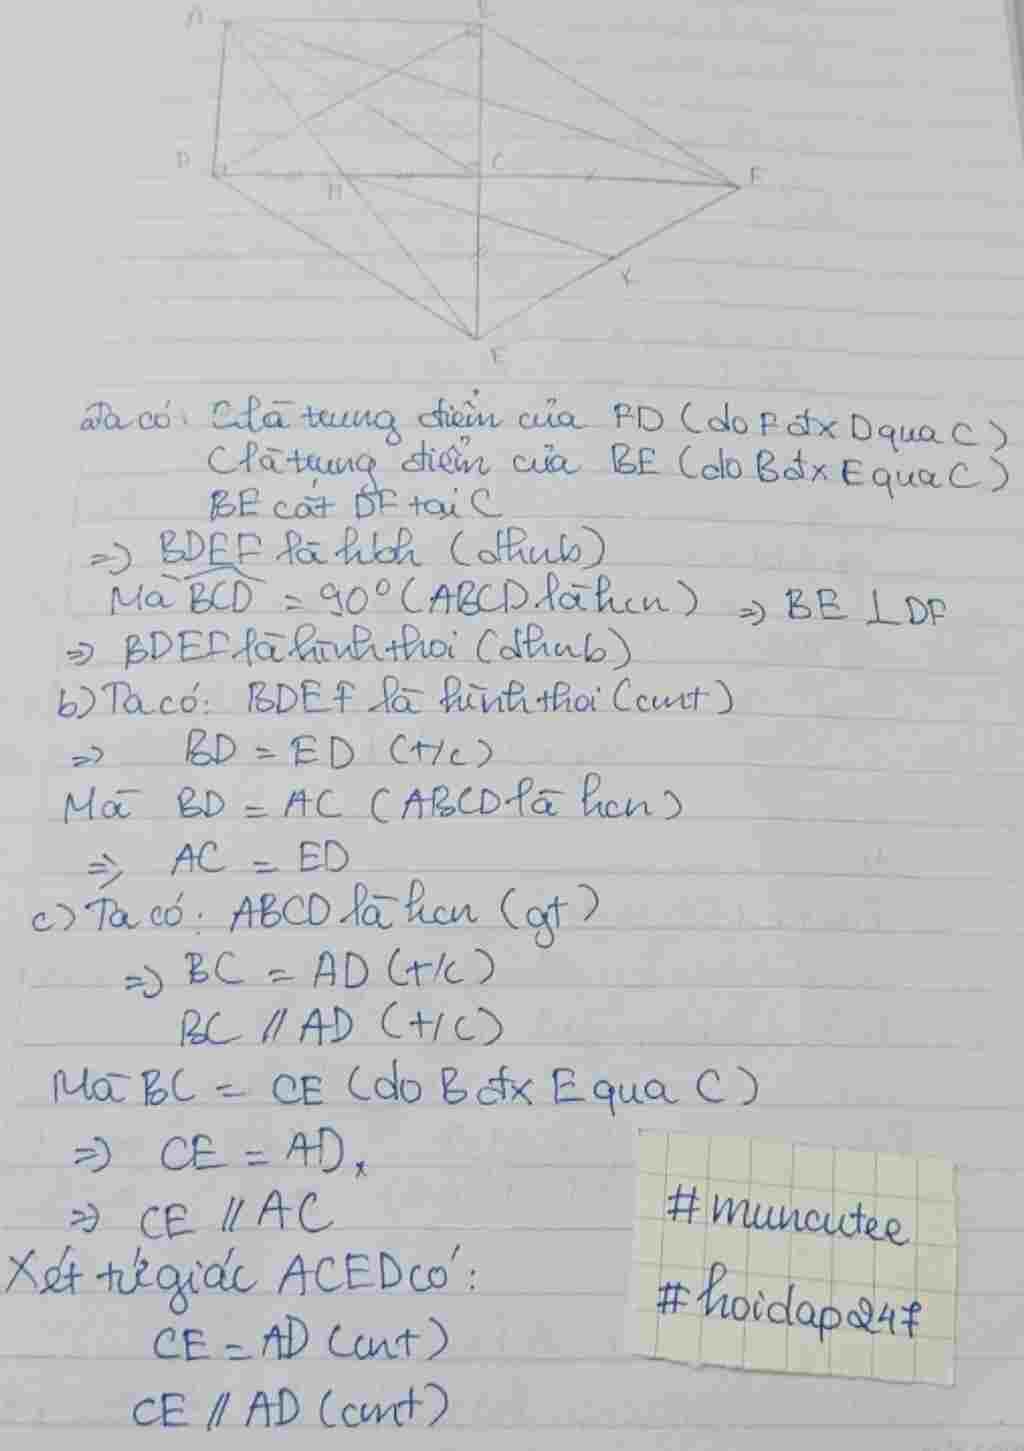 A B
D H C F
K
E
a) Ta có: C là trung điểm của FD (do F đx D qua C)
C là trung điểm của BE (do B đx E qua C)
BE cắt DF tại C
=> BDEF là hbh (dhnb)
Mà BCD = 90° (ABCD là hcn) => BE ⊥ DF
=> BDEF là hình thoi (dhnb)
b) Ta có: BDEF là hình thoi (cmt)
=> BD = ED (t/c)
Mà BD = AC (ABCD là hcn)
=> AC = ED
c) Ta có: ABCD là hcn (gt)
=> BC = AD (t/c)
BC // AD (t/c)
Mà BC = CE (do B đx E qua C)
=> CE = AD,
=> CE // AC
Xét tứ giác ACED có:
CE = AD (cmt)
CE // AD (cmt)
#muncutee
#hoidap247